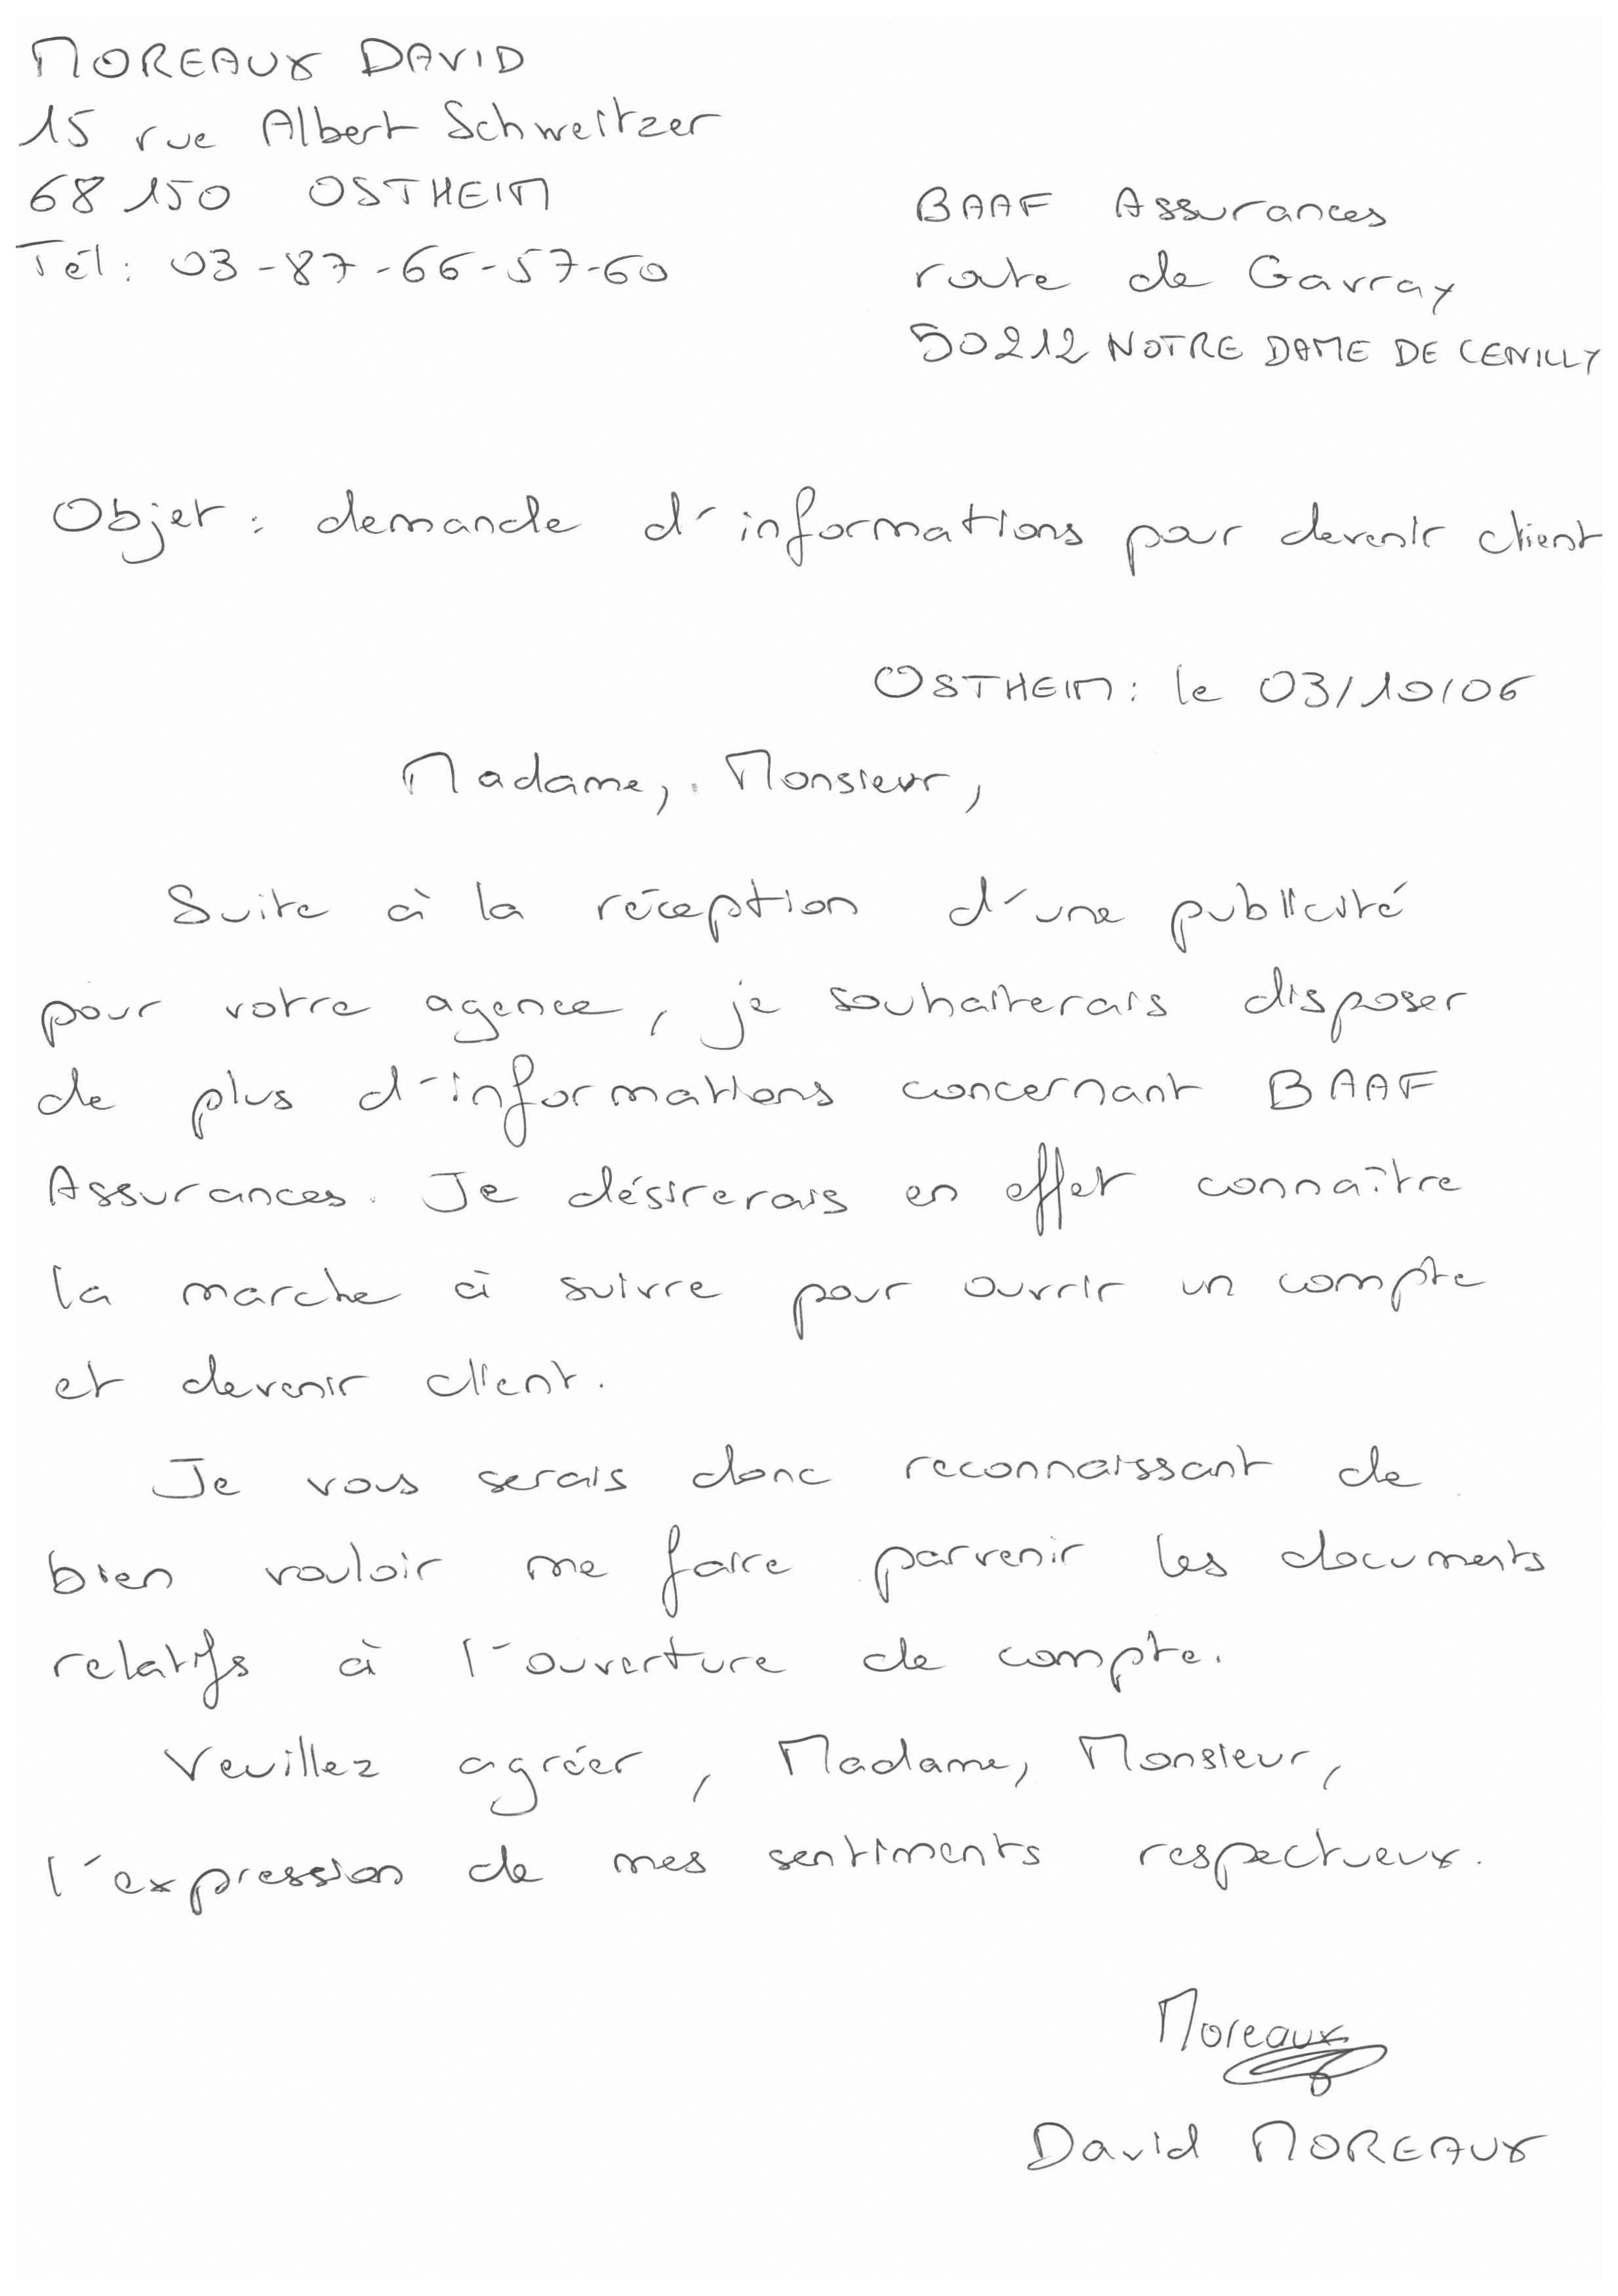 MOREAUX DAVID
15 rue Albert Schweitzer
68 150 OSTHEIM
Tél : 03-87-66-57-60
BAAF Assurances
route de Gavray
50212 NOTRE DAME DE CENILLY
Objet : demande d'informations pour devenir client
OSTHEIM : le 03/10/06
Madame, Monsieur,
Suite à la réception d'une publicité
pour votre agence, je souhaiterais disposer
de plus d'informations concernant BAAF
Assurances. Je désirerais en effet connaître
la marche à suivre pour ouvrir un compte
et devenir client.
Je vous serais donc reconnaissant de
bien vouloir me faire parvenir les documents
relatifs à l'ouverture de compte.
Veuillez agréer, Madame, Monsieur,
l'expression de mes sentiments respectueux.
Moreaux
David MOREAUX